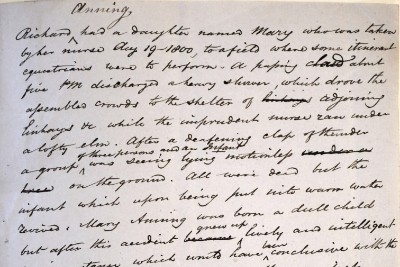 Anning,
Richard, had a daughter named Mary who was taken
by her nurse Aug 19–1800, to a field where some itinerant
equestrians were to perform. A passing cloud about
five PM discharged a heavy shower, which drove the
assembled crowds to the shelter of adjoining
linhays &c while the imprudent nurse ran under
a lofty elm. After a deafening clap of thunder
a group of three persons and an Infant was seen lying motionless
on the ground. All were dead but the
infant which upon being put into warm water
revived. Mary Anning was born a dull child
but after this accident grew up lively and intelligent
which been conclusive with the